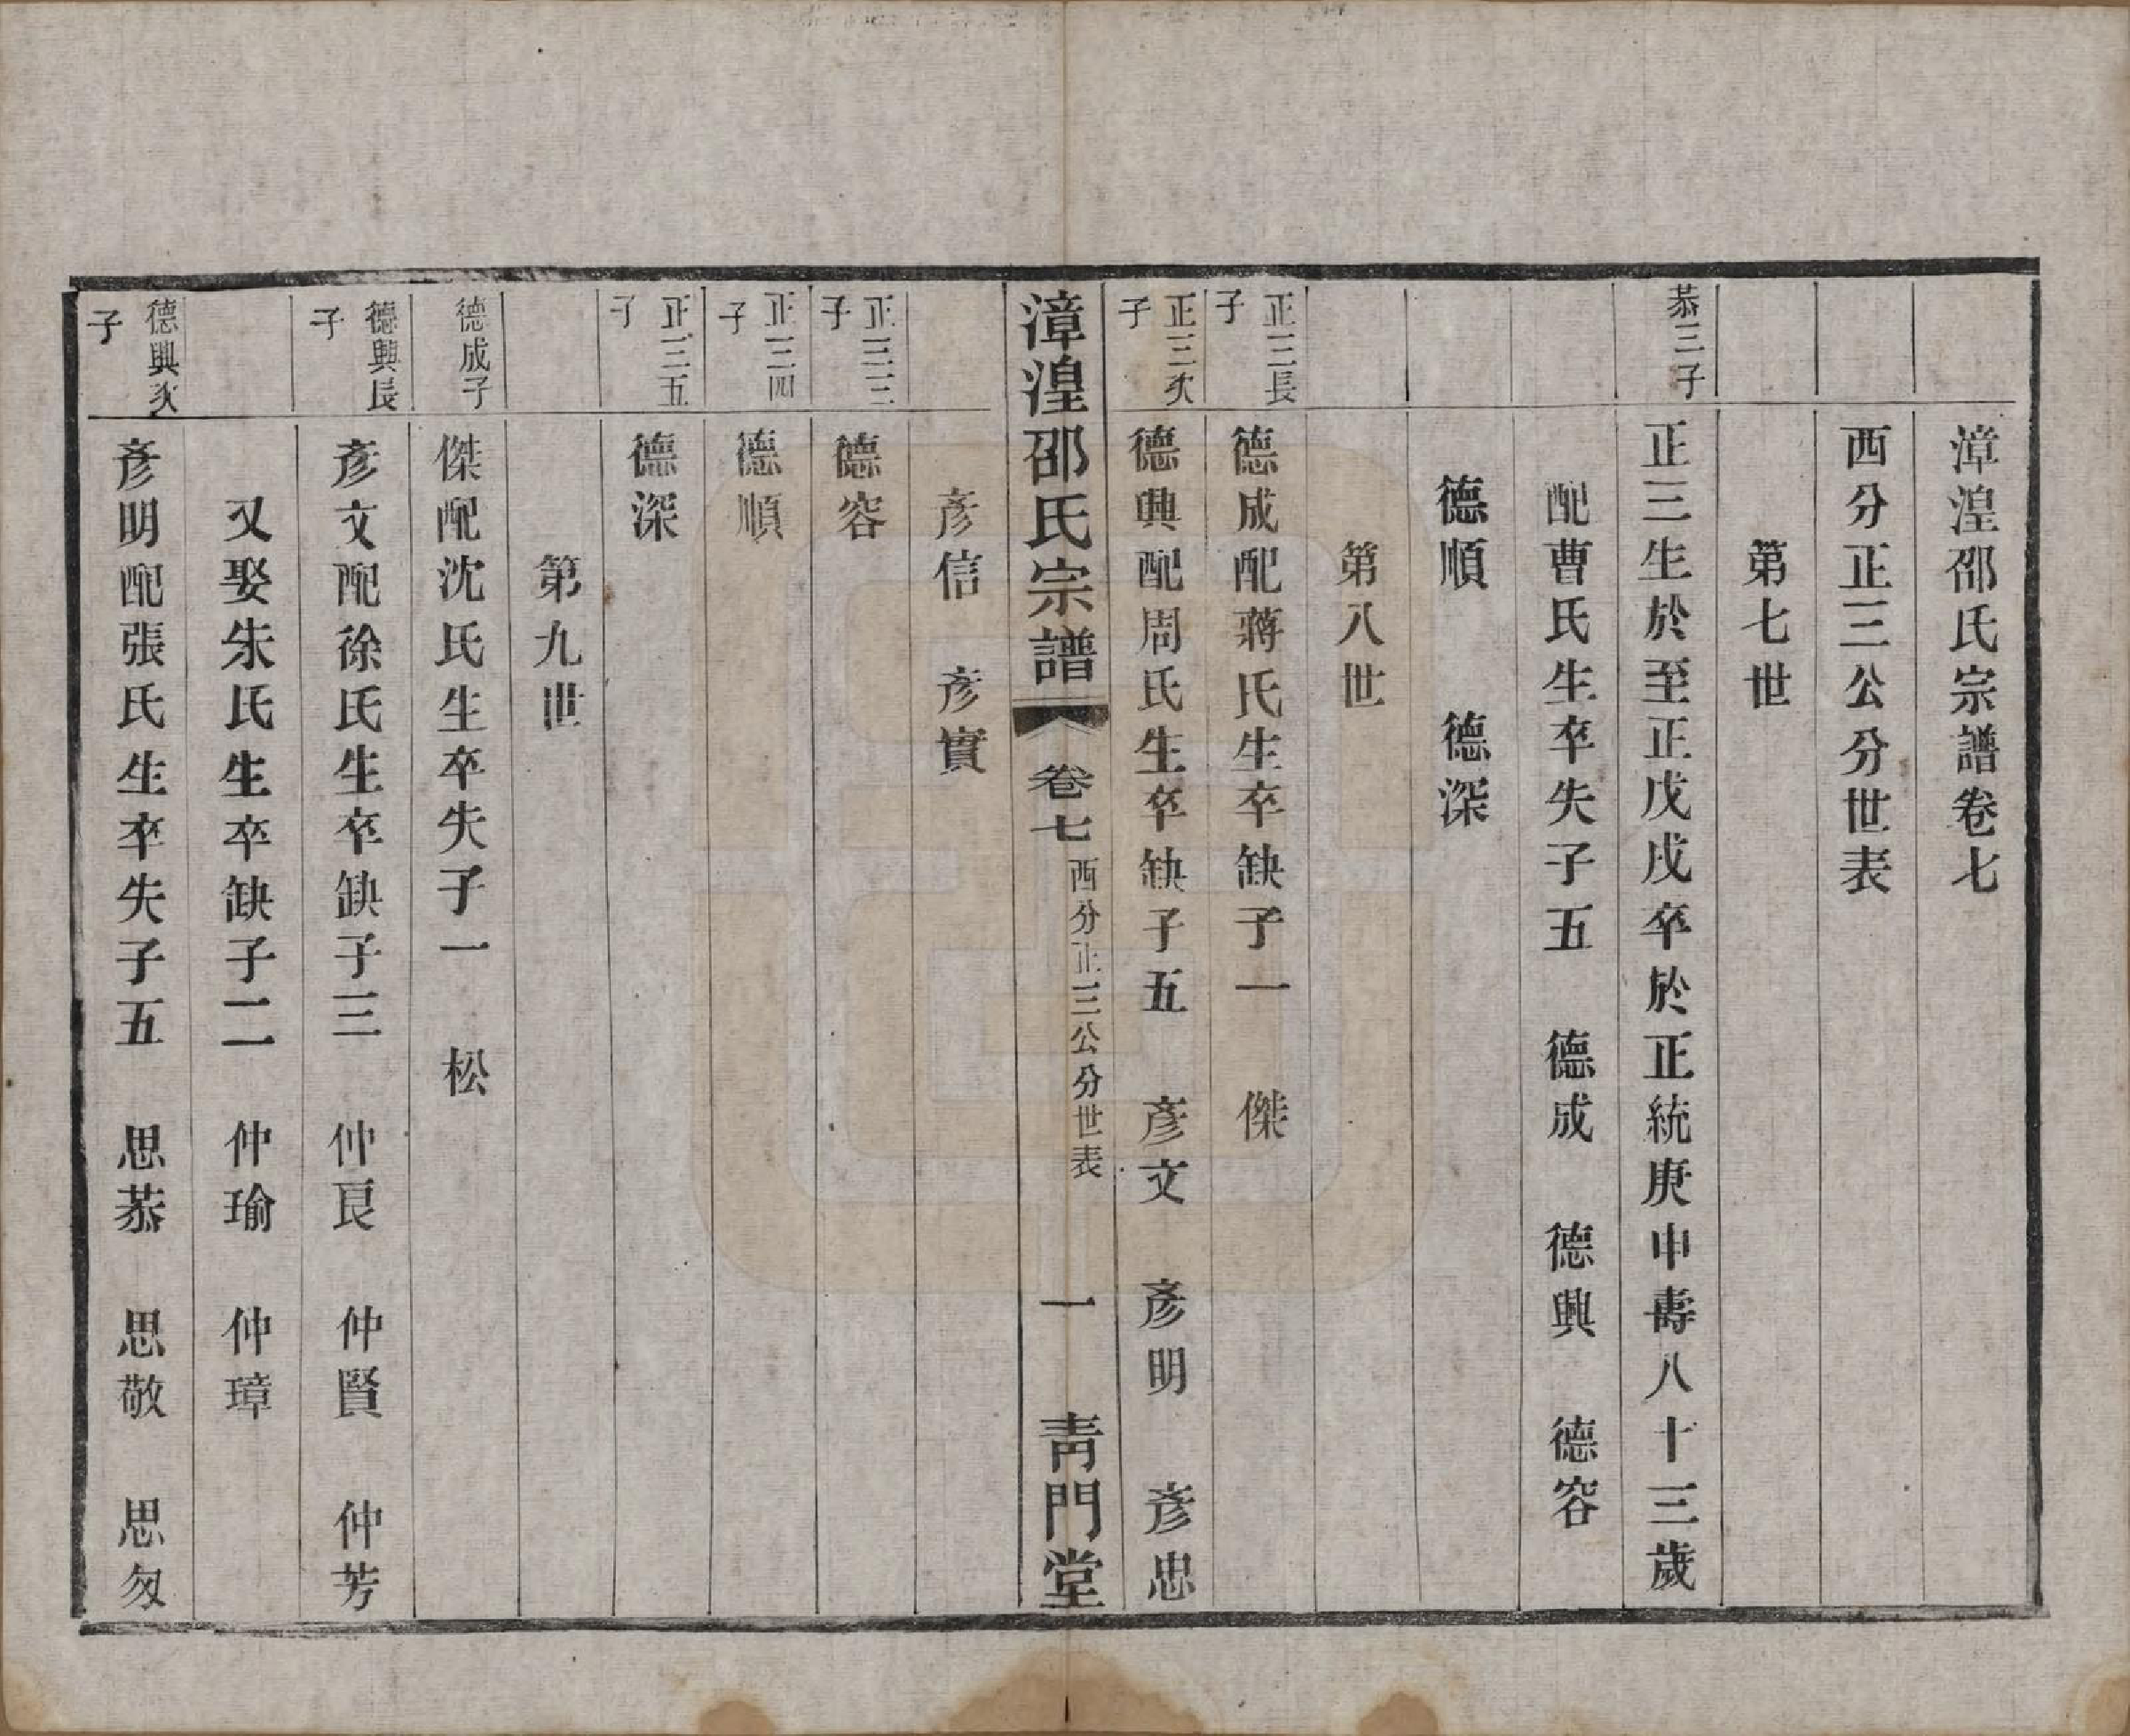 漳湟邵氏宗譜卷七
西分正三公分世表
第七世
恭三子
正三生於至正戊戌卒於正統庚申壽八十三歲
配曹氏生卒失子五　德成　德興　德容
德順　德深
第八世
正三長子
德成配蔣氏生卒缺子一　傑
正三次子
德興配周氏生卒缺子五　彥文　彥明　彥忠
漳湟邵氏宗譜　卷七　西分正三公分世表　一　青門堂
彥信　彥實
正三三子
德容
正三四子
德順
正三五子
德深
第九世
德成子
傑配沈氏生卒失子一　松
德興長子
彥文配徐氏生卒缺子三　仲良　仲賢　仲芳
又娶朱氏生卒缺子二　仲瑜　仲璋
德興次子
彥明配張氏生卒失子五　思恭　思敬　思匆